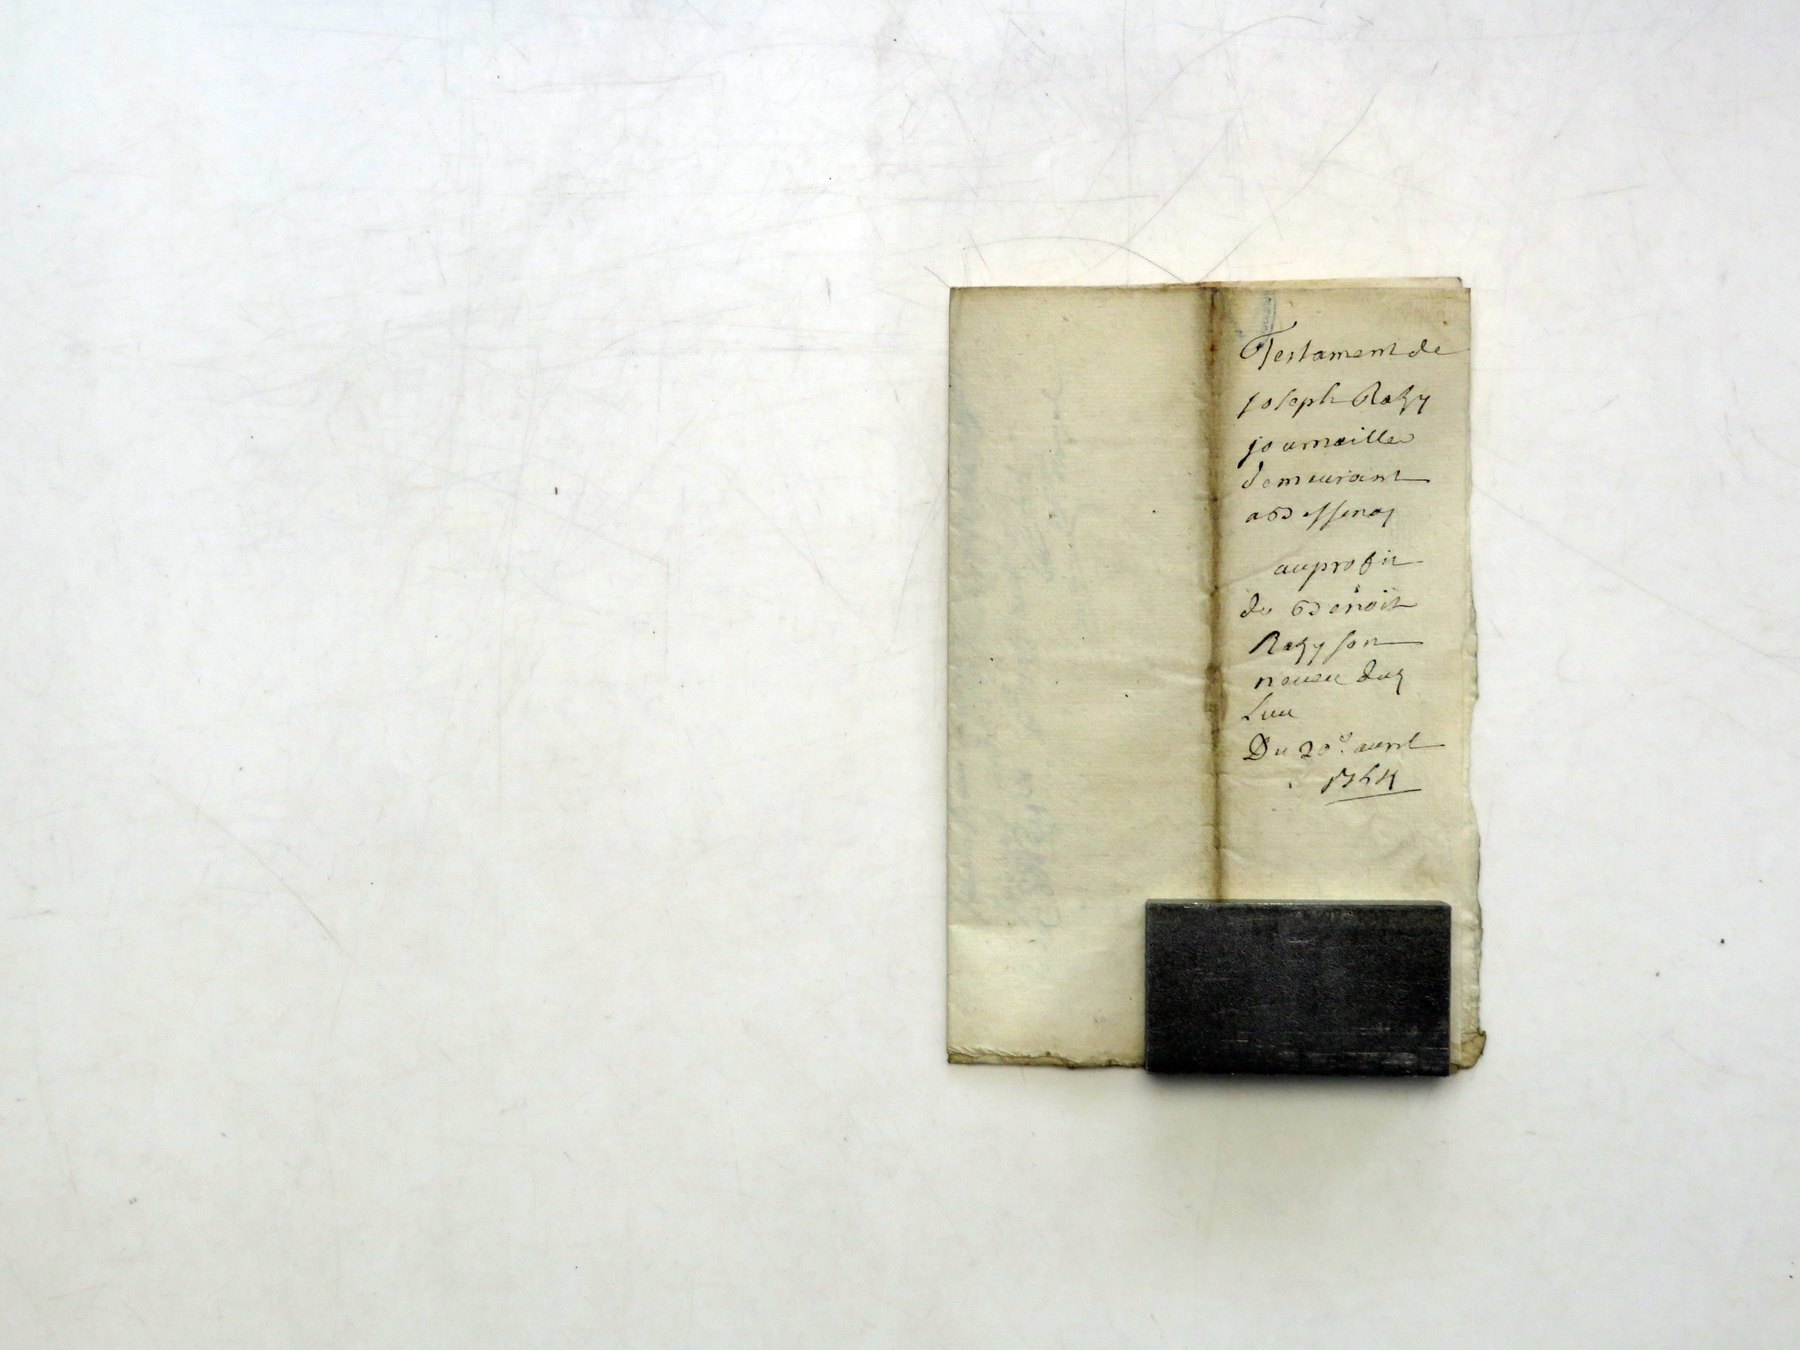 Testament de
joseph Razy
journaillier
demeurant
a Bessenay
au profit
de Benoît
Razy son
neveu dud
Lieu
Du 20e. avril
1764